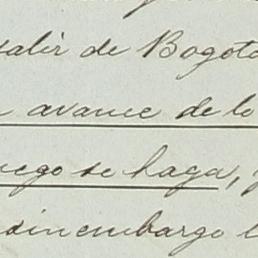 salir de Bogotá
avance de lo
uego se haga,
sin embargo